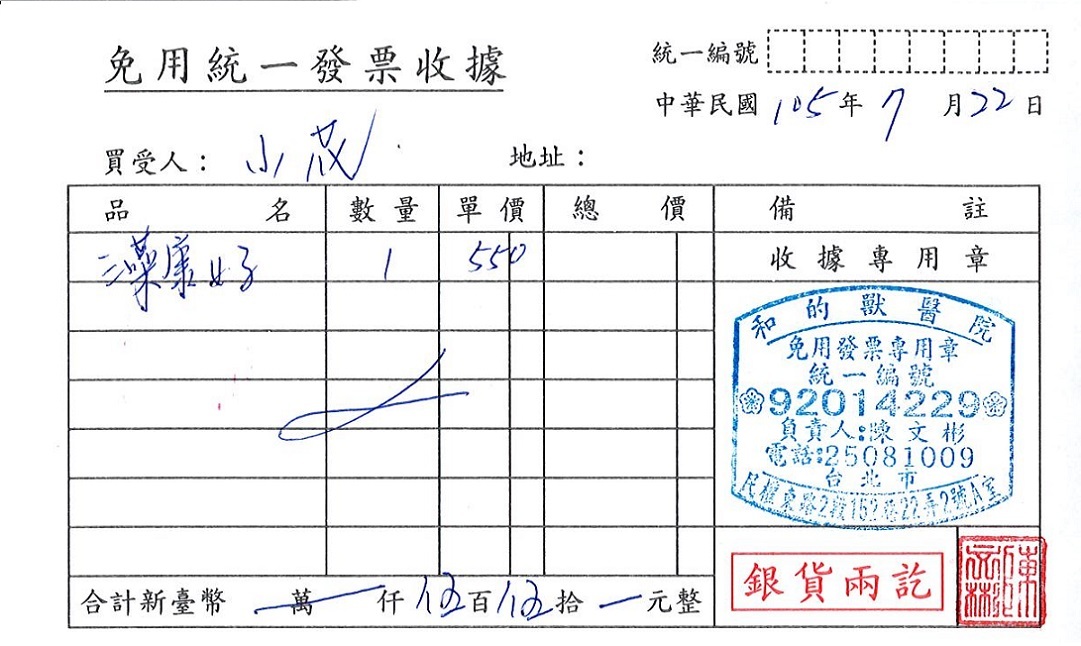 免用統一發票收據
統一編號
中華民國 105 年 7 月 22 日
買受人： 小茂 地址：
品名 數量 單價 總價 備註
藻康好子 1 550 收據專用章
和的獸醫院
免用發票專用章
統一編號
92014229
負責人:陳文彬
電話:25081009
台北市
民權東路2段152巷22弄2號A室
合計新臺幣 萬 仟 伍 百 伍 拾 元整
銀貨兩訖